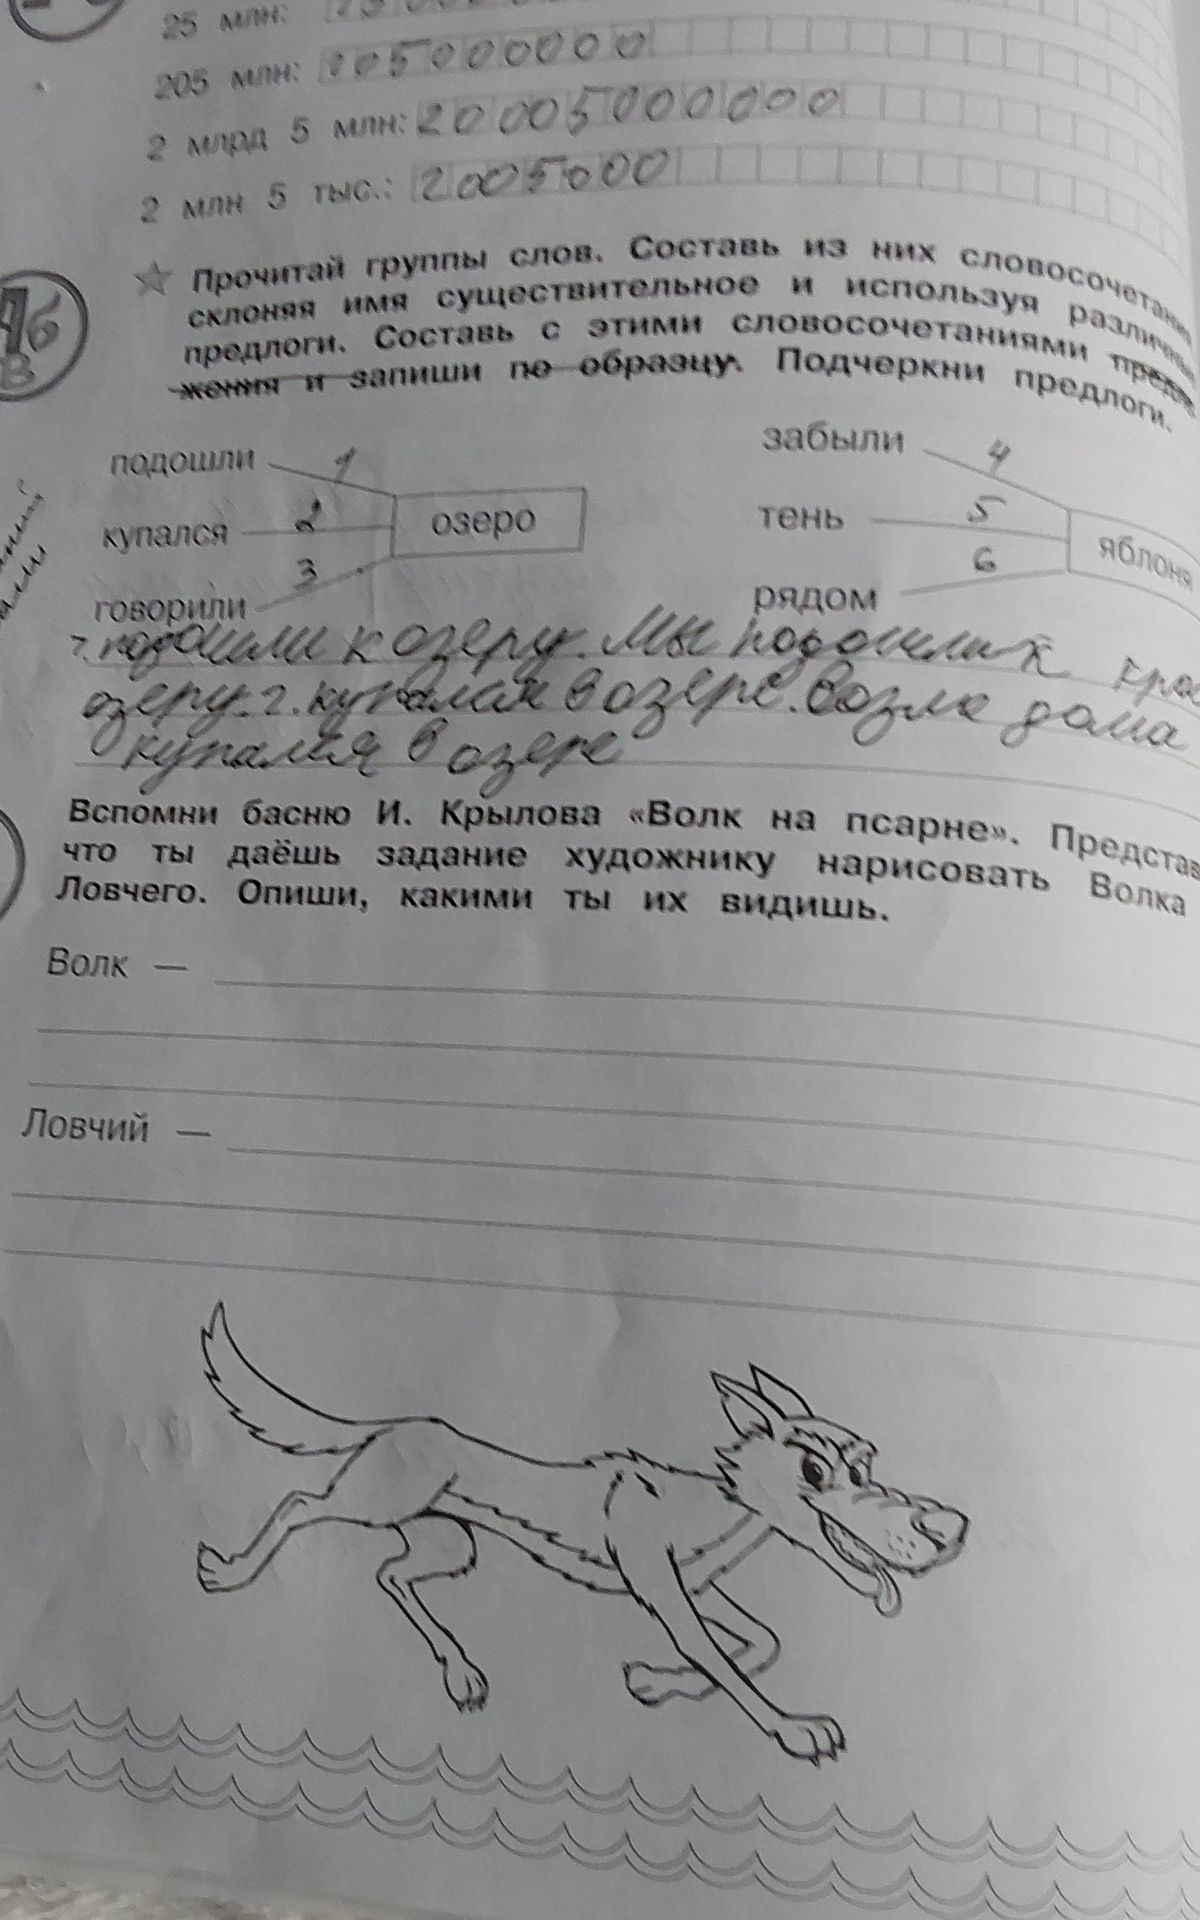 25 млн:
205 млн: 205000000
2 млрд 5 млн: 20005000000
2 млн 5 тыс.: 2005000
Прочитай группы слов. Составь из них словосочетания
склоняя имя существительное и используя различные
предлоги. Составь с этими словосочетаниями предло
жения и запиши по образцу. Подчеркни предлоги.
подошли 1
забыли 4
купался 2 озеро
тень 5 яблоня
говорили 3
рядом 6
подошли к озеру. Мы подошли к
озеру. 2. купался в озере. Возле дома
купался в озере
Вспомни басню И. Крылова «Волк на псарне». Представ
что ты даёшь задание художнику нарисовать Волка
Ловчего. Опиши, какими ты их видишь.
Волк —
Ловчий —